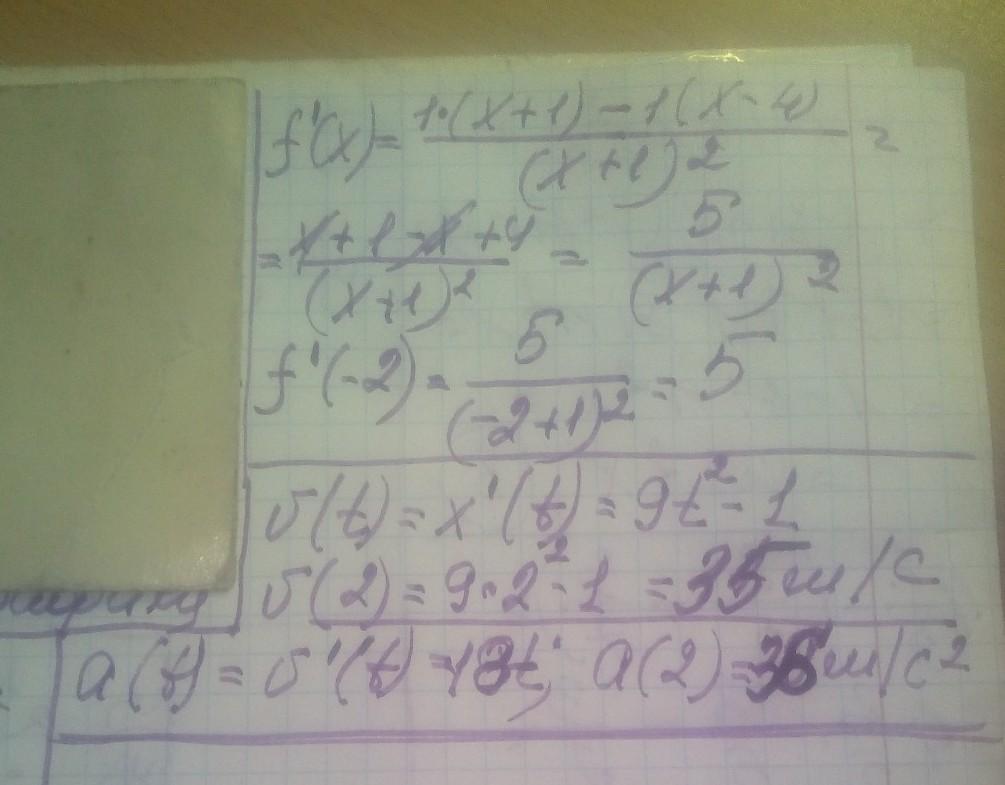 f'(x) = (1·(x+1) - 1(x-4))/(x+1)² =
= (x+1-x+4)/(x+1)² = 5/(x+1)²
f'(-2) = 5/(-2+1)² = 5
υ(t) = x'(t) = 9t² - 1
υ(2) = 9·2² - 1 = 35 м/с
a(t) = υ'(t) = 18t; a(2) = 36 м/с²